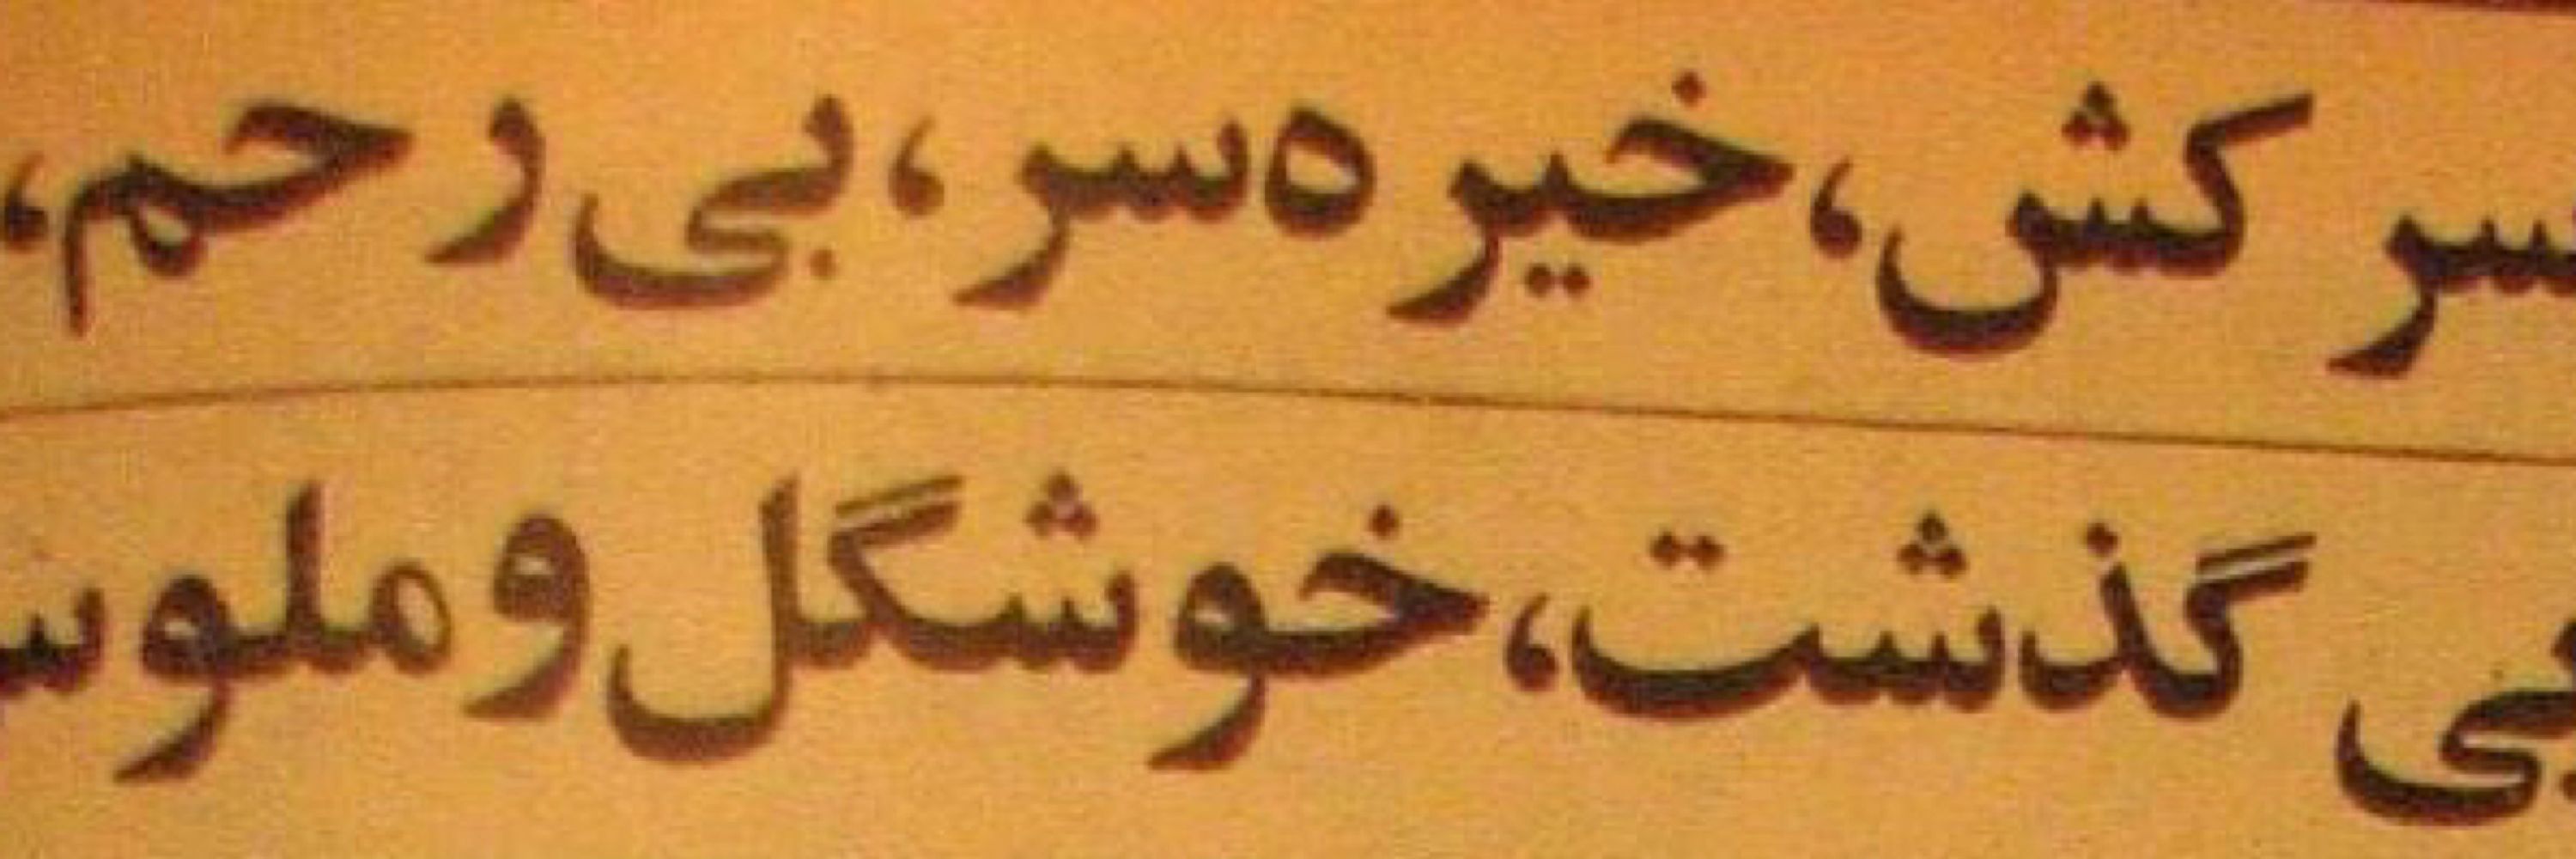 سر کش، خیره سر، بی رحم،
بی گذشت، خوشگل و ملوس